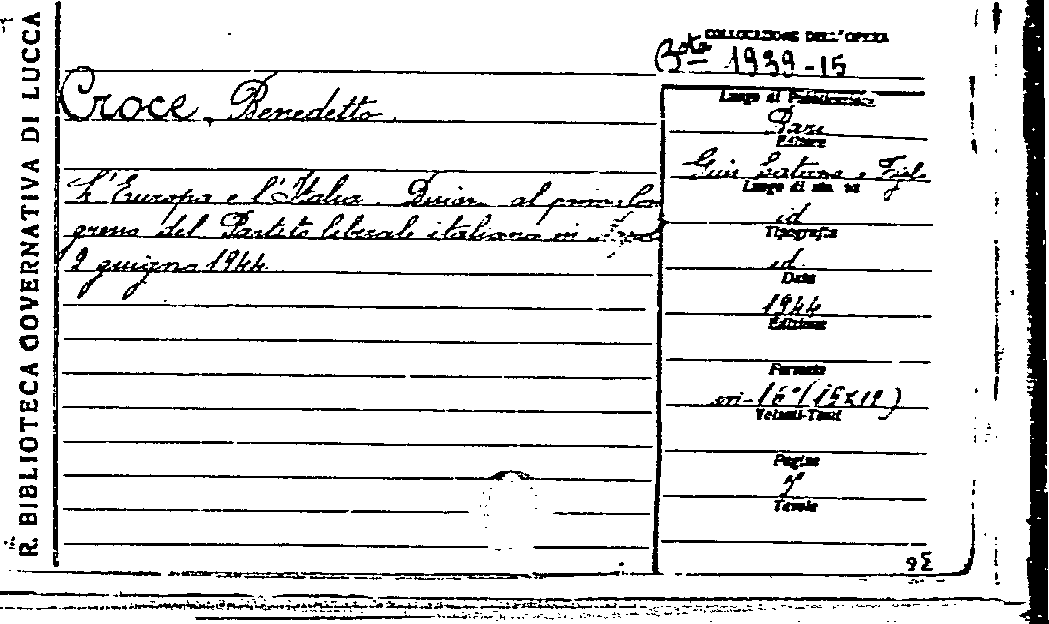 R. BIBLIOTECA GOVERNATIVA DI LUCCA
COLLOCAZIONE DELL'OPERA
Bta 1939-15
Croce, Benedetto.
L'Europa e l'Italia. al primo Con
gresso del Partito liberale italiano in
2 giugno 1944
Luogo di Pubblicazione
Bari
Editore
Gius. Laterza e Figli
Luogo di
id
Tipografia
id.
Data
1944
Edizione
Formato
in-16° (15x12)
Volumi-Tomi
Pagine
7
Tavole